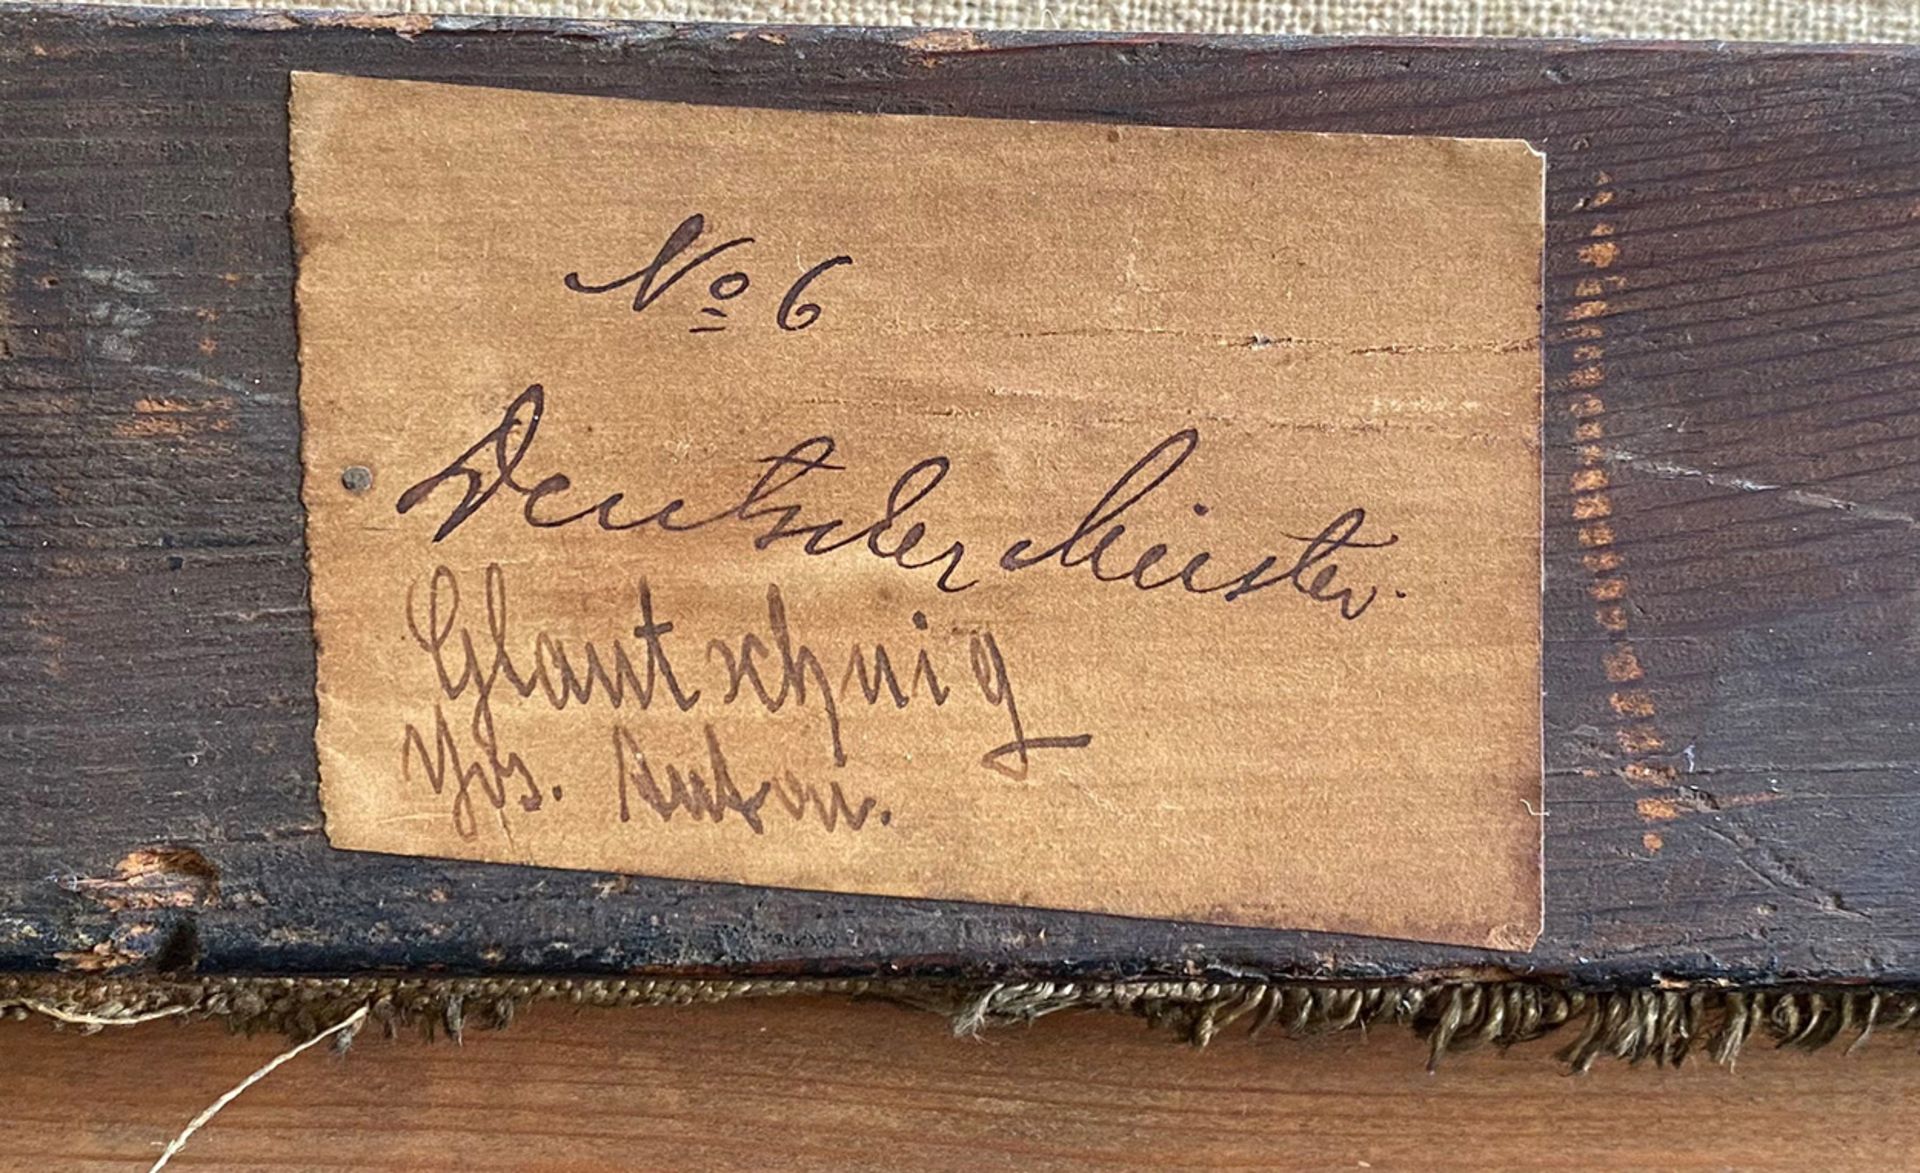 No 6
Deutscher Meister.
Glantschnig
Jos. Anton.